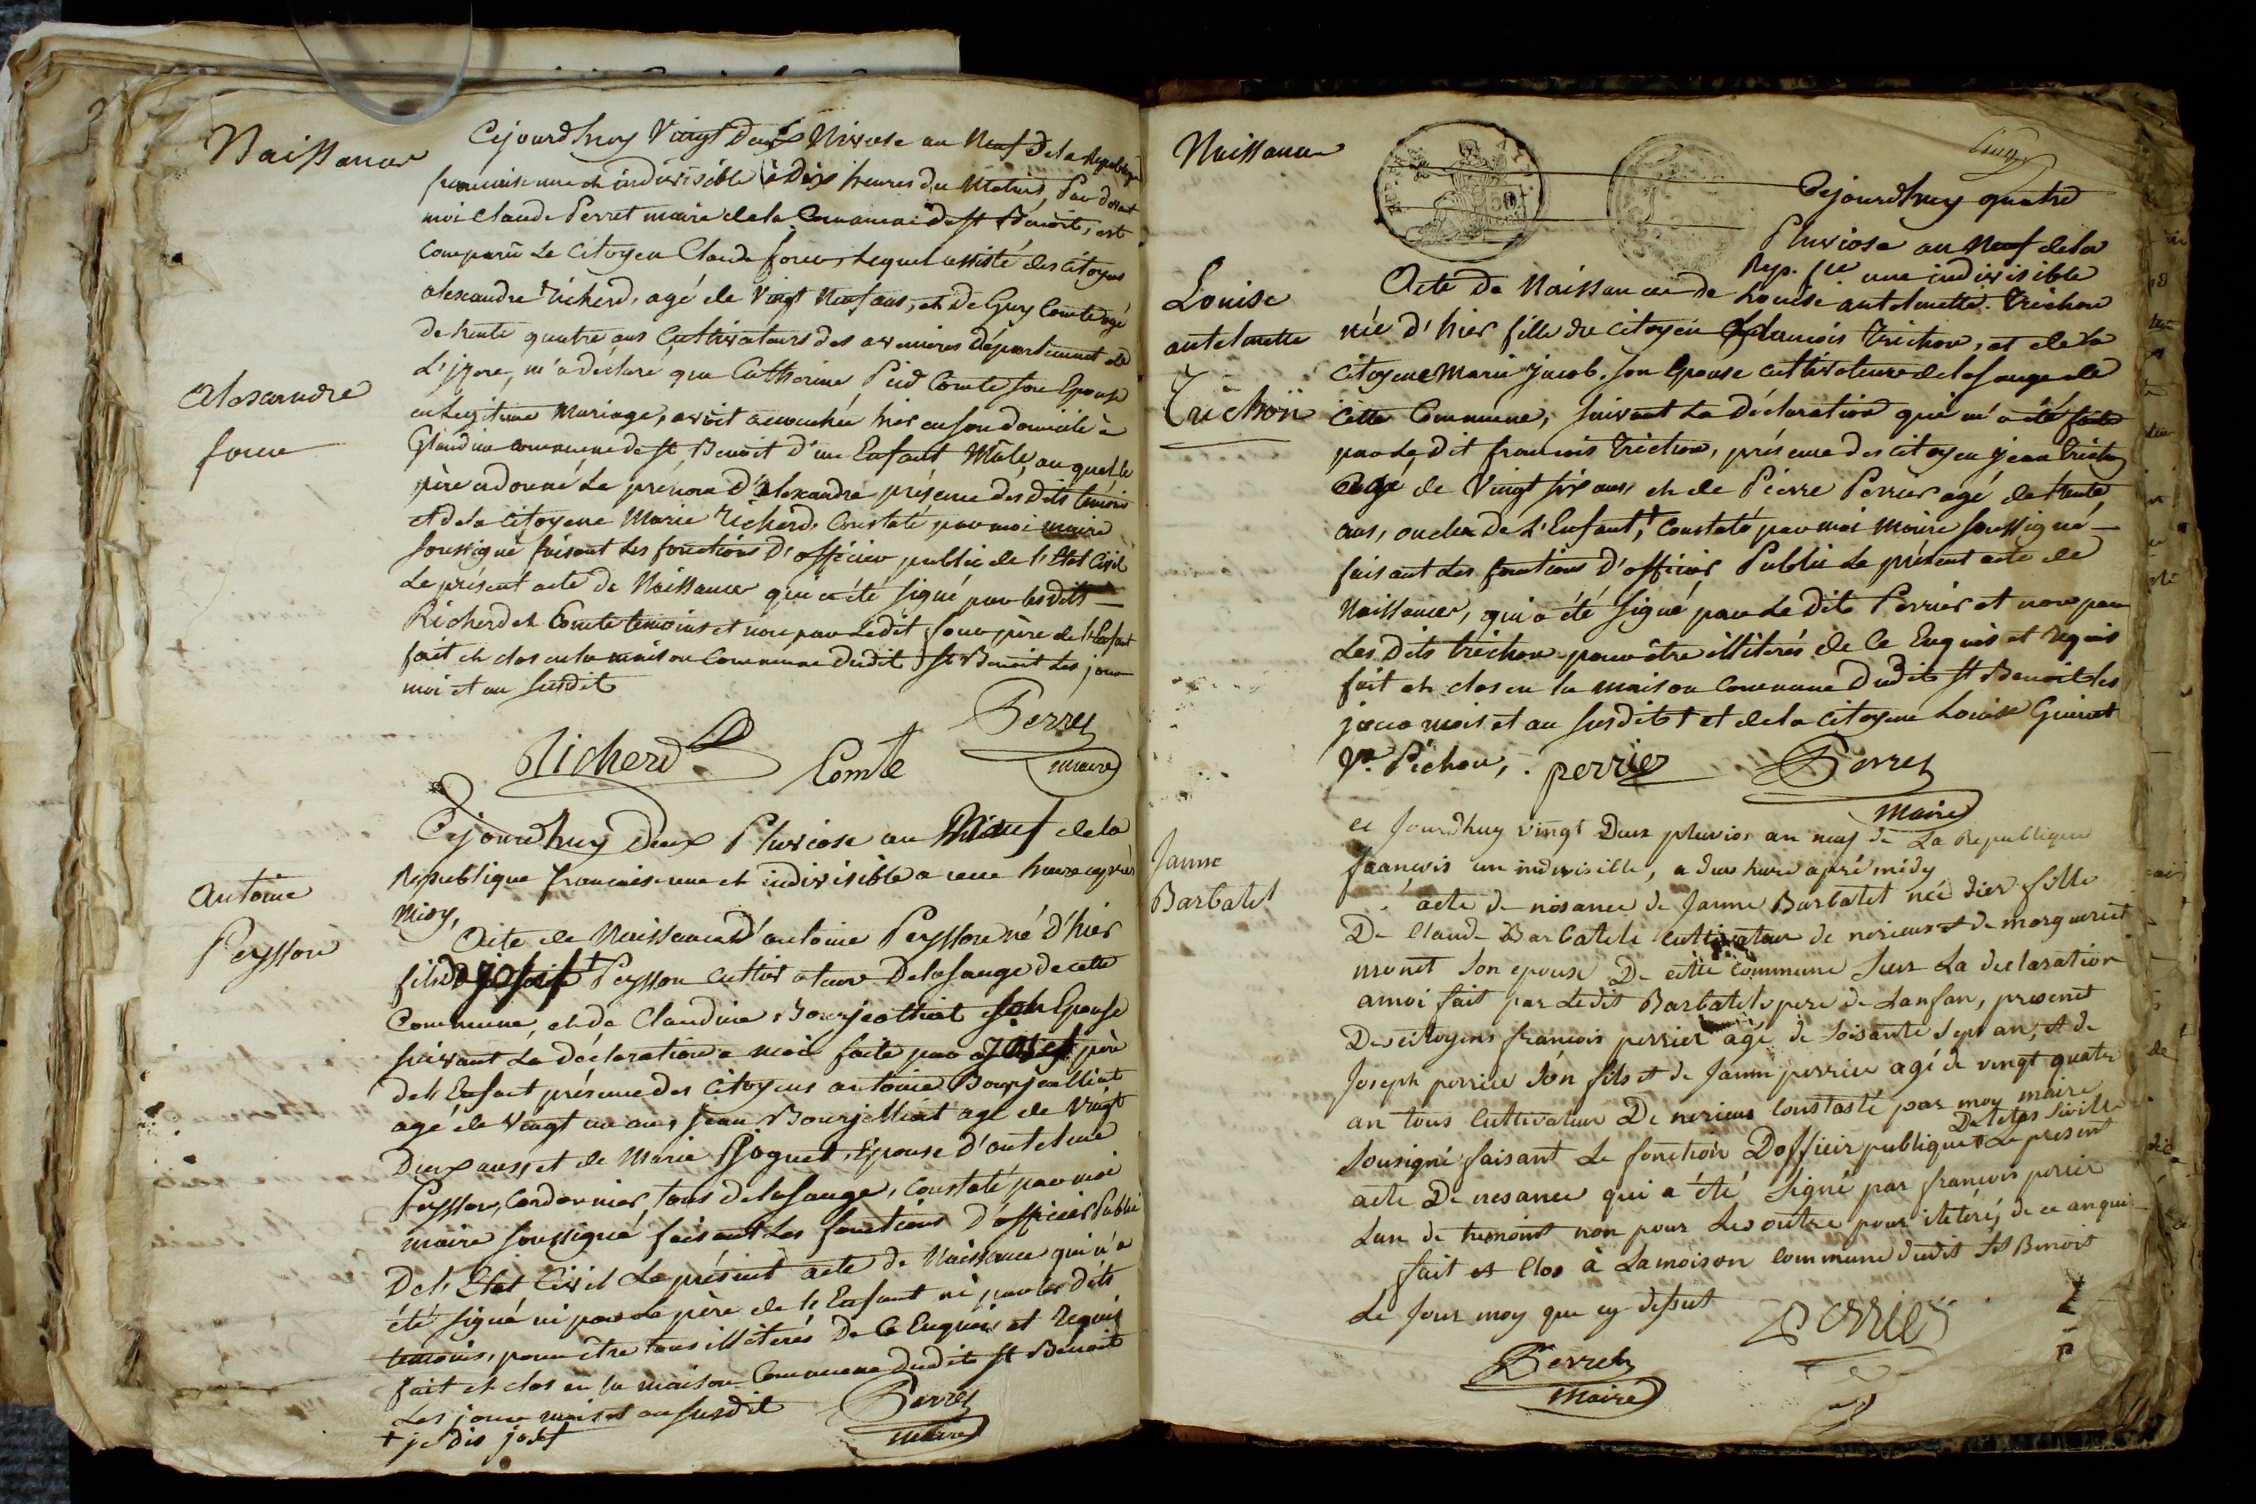 Naissance
Cejourdhuy Vingt Deux Nivose an Neuf de la Republique
francaise une et indivisible à Dix heures du Matin, Par devant
moi Claude Perret maire de la Commune de St Benoit, est
comparu Le Citoyen Claude foux, Lequel assisté des Citoyens
alexandre Richerd, agé de Vingt Neuf ans, et De Guy Comte agé
de trente quatre ans Cultivateurs des avenieres Département de
L'izere, m'a déclaré que Catherine Comte son Epouse
en Legitime Mariage, avoit accouchée hier en son domicile à
Glandieu commune de St Benoit d'un Enfant Male, au quel le
père a donné Le prénom D'alexandre présence des dits temoins
et de la Citoyene Marie Richerd. Constaté par moi maire
soussigné faisant Les fonctions D'officier public de l'Etat Civil
Le présent acte de Naissance qui a été signé par les dits
Richerd et Comte temoins et non par Ledit père de l'Enfant
fait et clos en la maison commune dudit St Benoit Les jour
moi et an susdit
Alexandre
Richerd Comte Perret
maire
Cejourdhuy Deux Pluviose an Neuf de la
Republique francaise une et indivisible a une heure après
Midy,
antoine
Peysson
Acte de Naissance d'antoine Peysson né d'hier
fils de josef + Peysson Cultivateur De la sauge de cette
Commune, et de Claudine son Epouse
suivant La déclaration a moi faite par josef père
de l'Enfant présence des Citoyens antoine
agé de Vingt un ans, jean agé de Vingt
Deux ans, et de Marie Epouse d'antelme
Peysson, Cordonnier, tous de la sauge, constaté par moi
maire soussigné faisant Les fonctions D'officier Public
De l'Etat Civil Le présent acte de Naissance qui n'a
été signé ni par Le père de l'Enfant ni par les dits
temoins, pour être tous illiterés De Ce Enquis et Requis
fait et clos en la maison Commune dudit St Benoit
Les jour mois et an susdit
Perret
maire
+ je dis josef
Naissance
Cejourdhuy quatre
Pluviose an Neuf de la
Rep. fse une indivisible
Louise
antelmette
Trichon
Acte De Naissance de Louise antelmette Trichon
née d'hier fille du Citoyen francois Trichon, et de la
Citoyene Marie Jacob, son Epouse cultivateurs de la sauge de
cette Commune, suivant La Déclaration qui m'a été faite
par Le dit francois Trichon, présence des citoyen jean Trichon
agé de Vingt six ans, et de Pierre Perrier agé de trente
ans, oncles de L'Enfant, + constaté par moi Maire soussigné
faisant Les fonctions D'officier Public Le présent acte de
Naissance, qui a été signé par Le dit Perrier et non par
Les Dits trichon pour être illiterés de Ce Enquis et requis
fait et clos en la maison commune Dudit St Benoit les
jour mois et an susdit + et de la Citoyene Louise
perrier Perret
maire
Janne
Barbatel
ce Jourdhuy vingt Deux pluvios an neuf de La Republique
françois un indivisible, a deux hure apré midy
acte de nésance de Janne Barbatel née dier fille
De Claude Barbatel cultivateur de et de marguerit
monet son epouse De cette commune Sur La declaration
amoi fait par Ledit Barbatel pere de Lanfan, presenet
De citoyens françois perrier agé de soisante sept an, et de
Joseph perrier són fils et de Janne perrier agé de vingt quatre
an tous Cultivateur De Constasté par moy maire
Sousigné faisant Le fonction Dofficier publique De letas sivile Le present
acte De nesance qui a été signé par françois perier
Lun de temoins non pour Les outre pour iletéré, de ce anquis
fait et Clos à Lamoison Commune dudit St Benoit
Le Jour moy que cy dessus
Perrier
Perret
maire